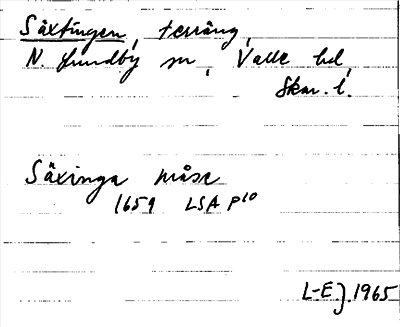 Säxtingen, terräng,
N. Lundby sn, Valle hd,
Skar. l.
Säxinga måse
1659 LSA P10
L-E J. 1965